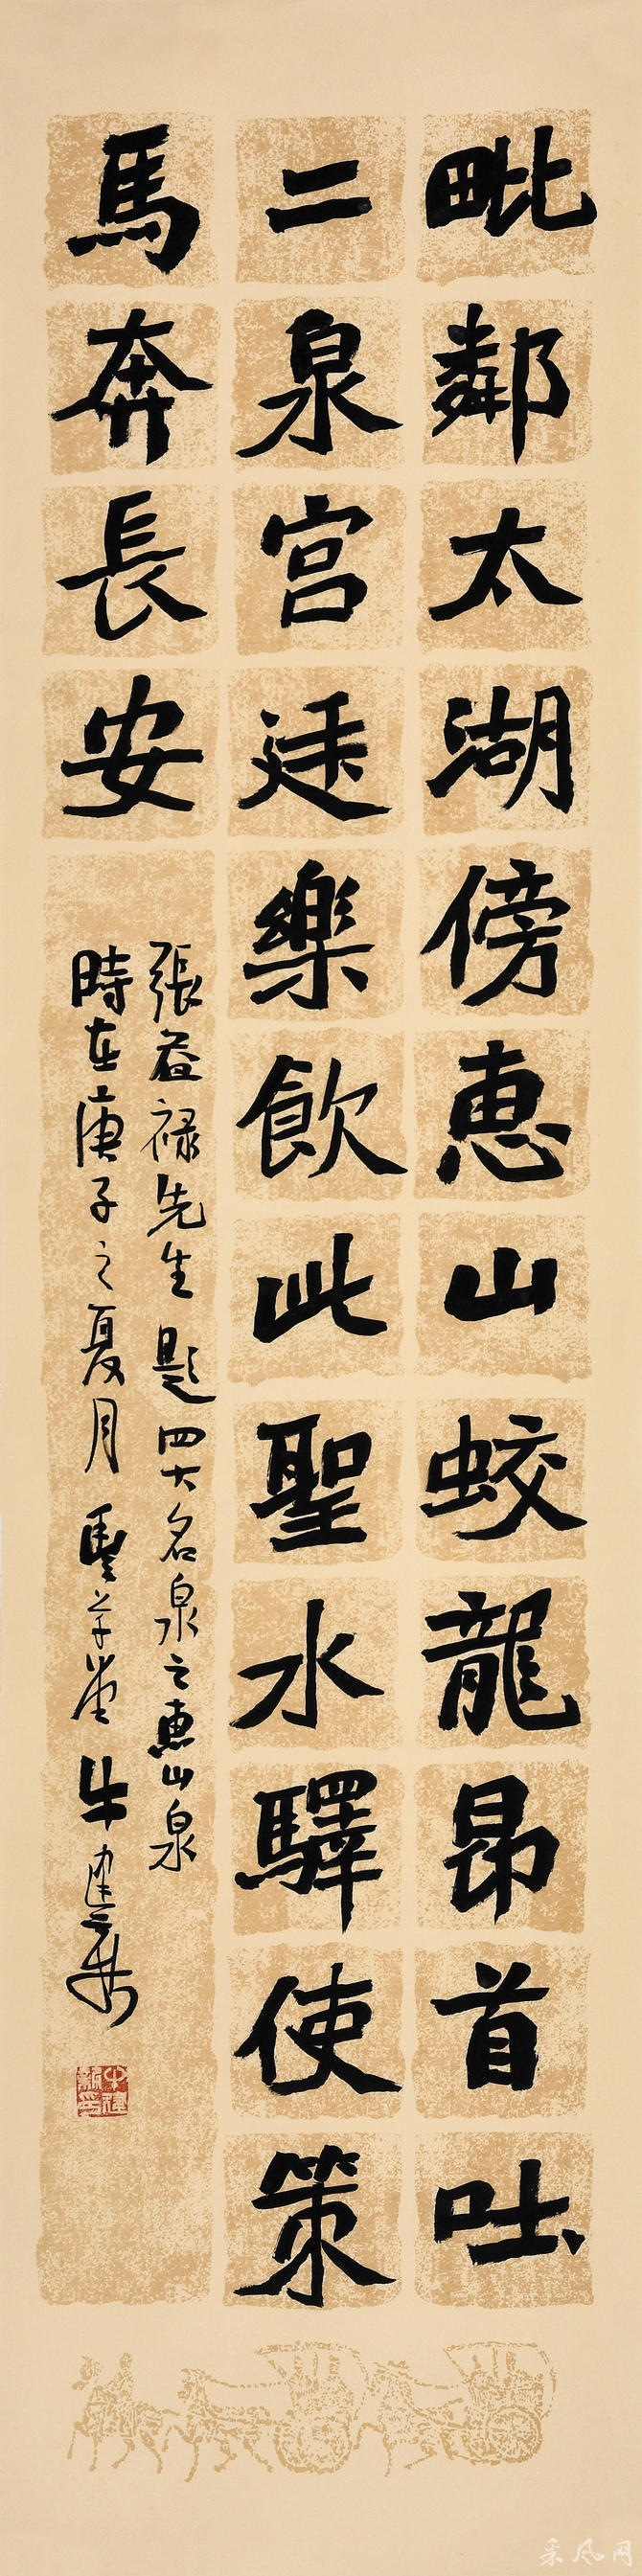 毗鄰太湖傍惠山蛟龍昂首吐
二泉宫廷樂飲此聖水驛使策
馬奔長安
張益禄先生題四大名泉之惠山泉
時在庚子之夏月 牛建新
牛建新印
采风网